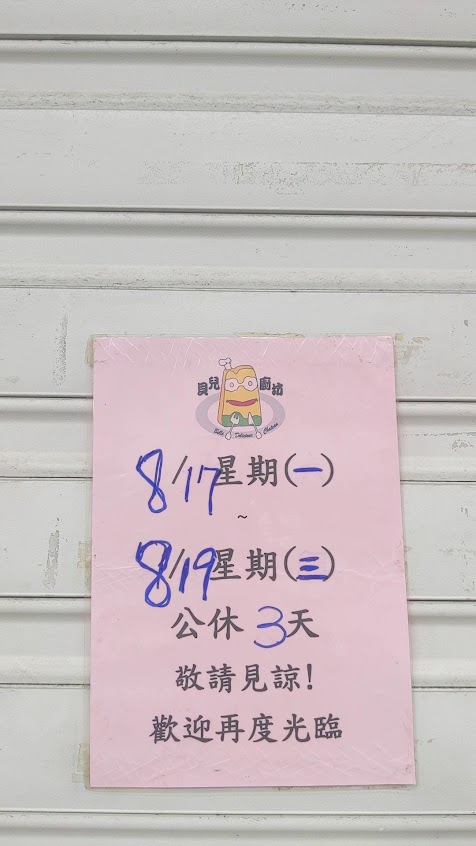 貝兒 廚坊
Delicious
8/17星期(一)
~
8/19星期(三)
公休3天
敬請見諒!
歡迎再度光臨